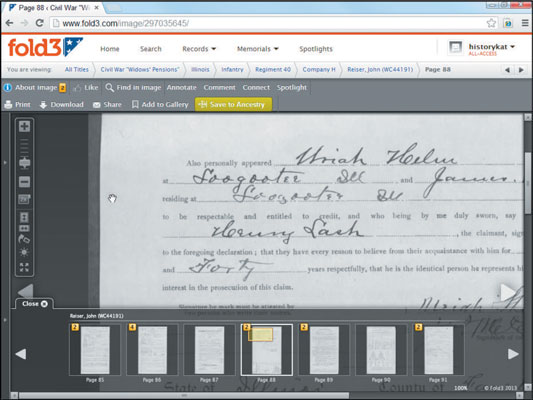 Page 88 - Civil War "Wido
www.fold3.com/image/297035645/
fold3
Home
Search
Records
Memorials
Spotlights
historykat
ALL-ACCESS
You are viewing:
All Titles
Civil War "Widows' Pensions"
Illinois
Infantry
Regiment 40
Company H
Reiser, John (WC44191)
Page 88
About image 2
Like
Find in image
Annotate
Comment
Connect
Spotlight
Print
Download
Share
Add to Gallery
Save to Ancestry
Also personally appeared Uriah Helm
at Loogootee Ill and James
residing at Loogootee Ill
to be respectable and entitled to credit, and who being by me duly sworn, say
Henry Lash, the claimant, sign
to the foregoing declaration; that they have every reason to believe from their acquaintance with him for
and Forty years respectfully, that he is the identical person he represents hi
interest in the prosecution of this claim.
Uriah
Close
Reiser, John (WC44191)
2
4
2
2
2
Page 85
Page 86
Page 87
Page 88
Page 89
Page 90
Page 91
State of Illinois County of
100%
© Fold3 2013